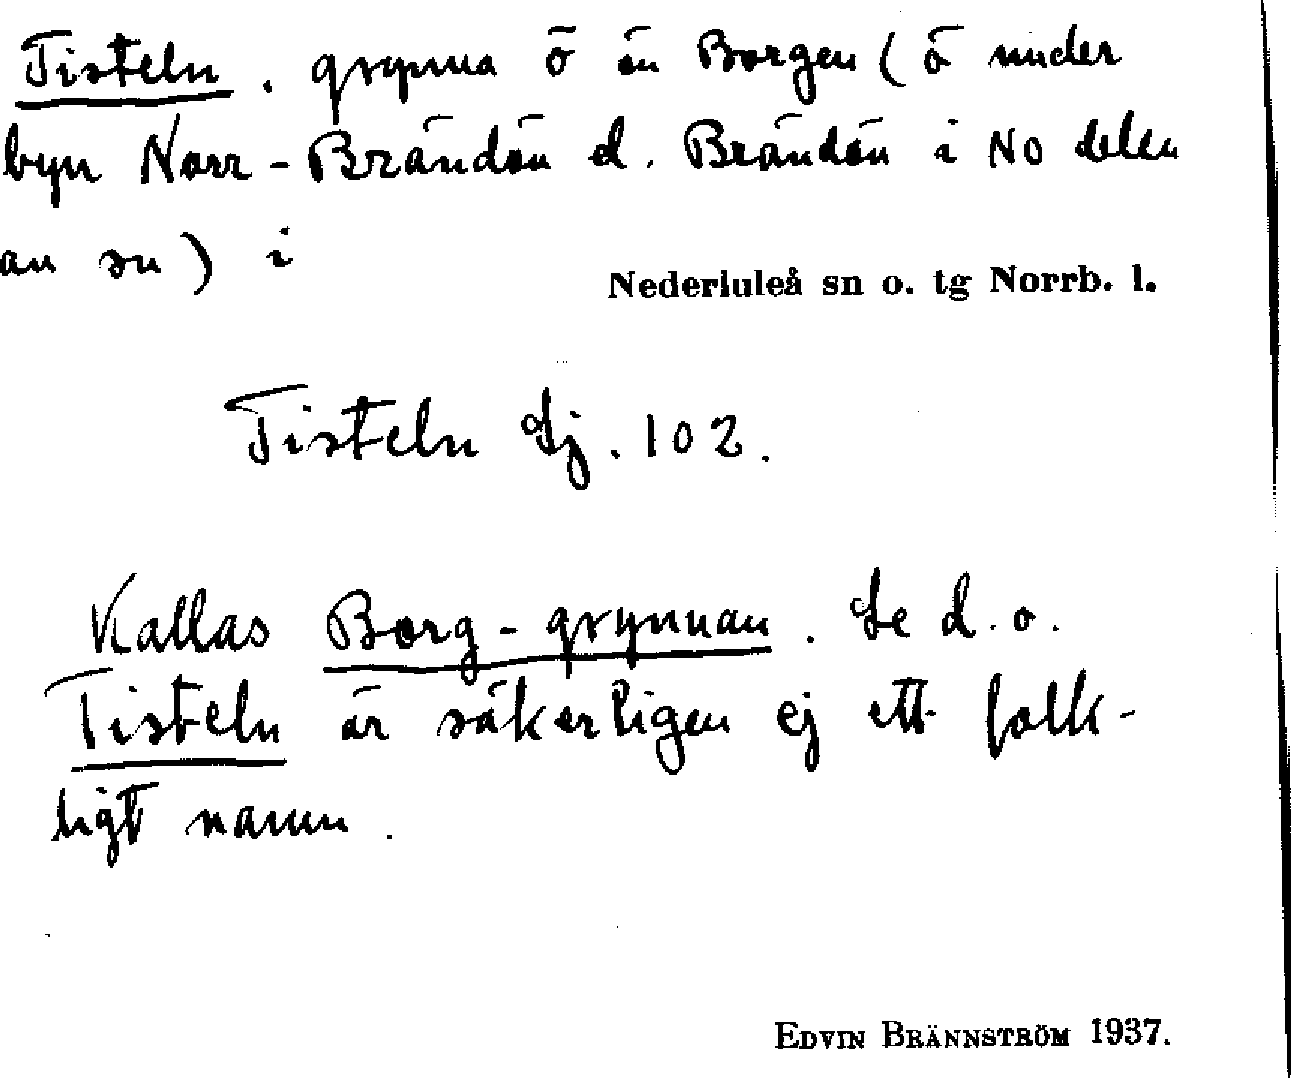 Tisteln. grynna ö ön Borgen (ö under
byn Norr-Brändön el. Brändön i NO delen
av sn) i
Nederluleå sn o. tg Norrb. l.
Tisteln Sj. 102.
Kallas Borg-grynnan. Se d.o.
Tisteln är säkerligen ej ett folk-
ligt namn.
EDVIN BRÄNNSTRÖM 1937.